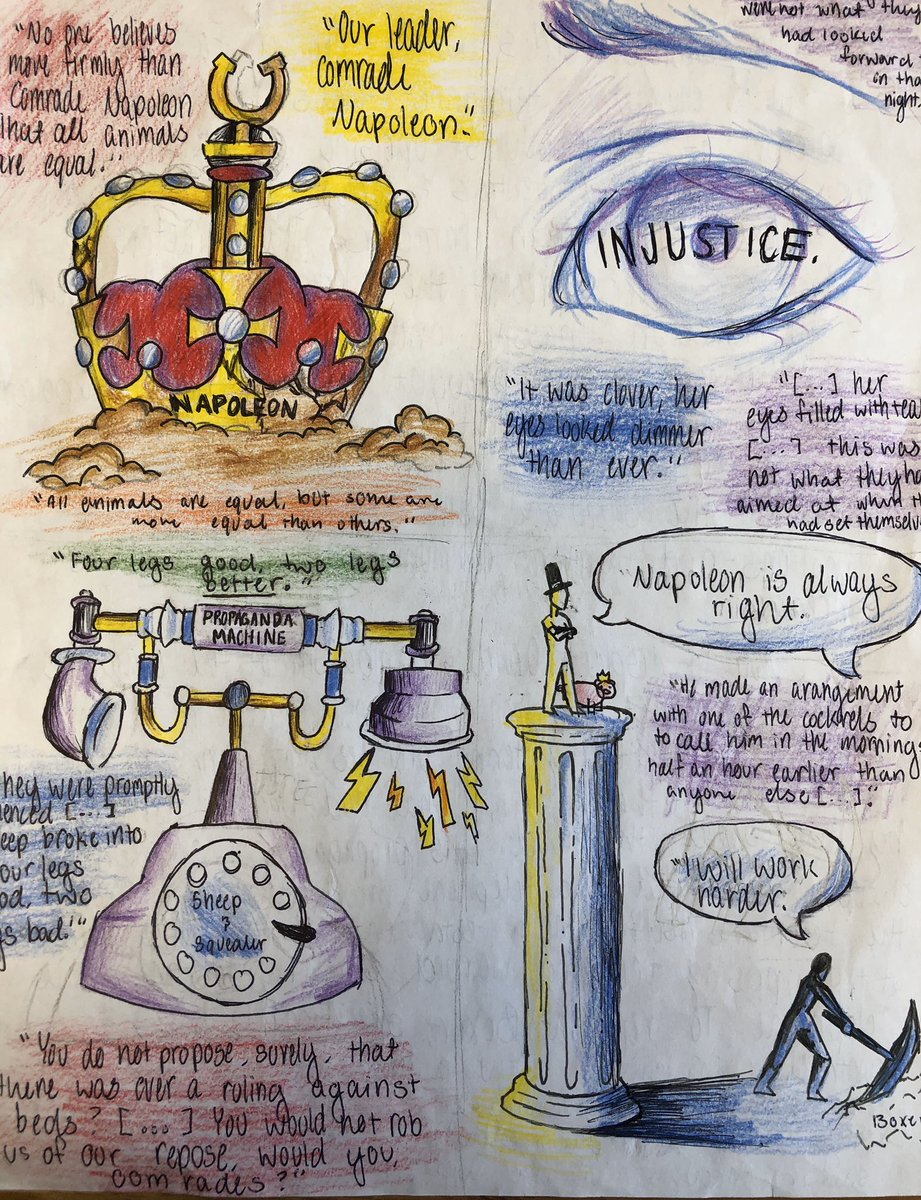 "No one believes
more firmly than
Comrade Napoleon
that all animals
are equal."
"Our leader,
comrade
Napoleon."
NAPOLEON
"All animals are equal, but some are
more equal than others."
were not what they
had looked
forward
in tha
night.
INJUSTICE.
"It was clover, her
eyes looked dimmer
than ever."
"[...] her
eyes filled with tea
[...] this was
not what they ha
aimed at when th
had set themselve
"Four legs good, two legs
better."
PROPAGANDA
MACHINE
they were promptly
lenced [...]
eep broke into
our legs
od, two
gs bad."
Sheep
&
Squealer
"You do not propose, surely, that
there was ever a ruling against
beds? [...] You would not rob
us of our repose, would you,
comrades?"
"Napoleon is always
right.
"He made an arangement
with one of the cockrels to
to call him in the mornings
half an hour earlier than
anyone else [...]."
"I will work
harder.
Boxe